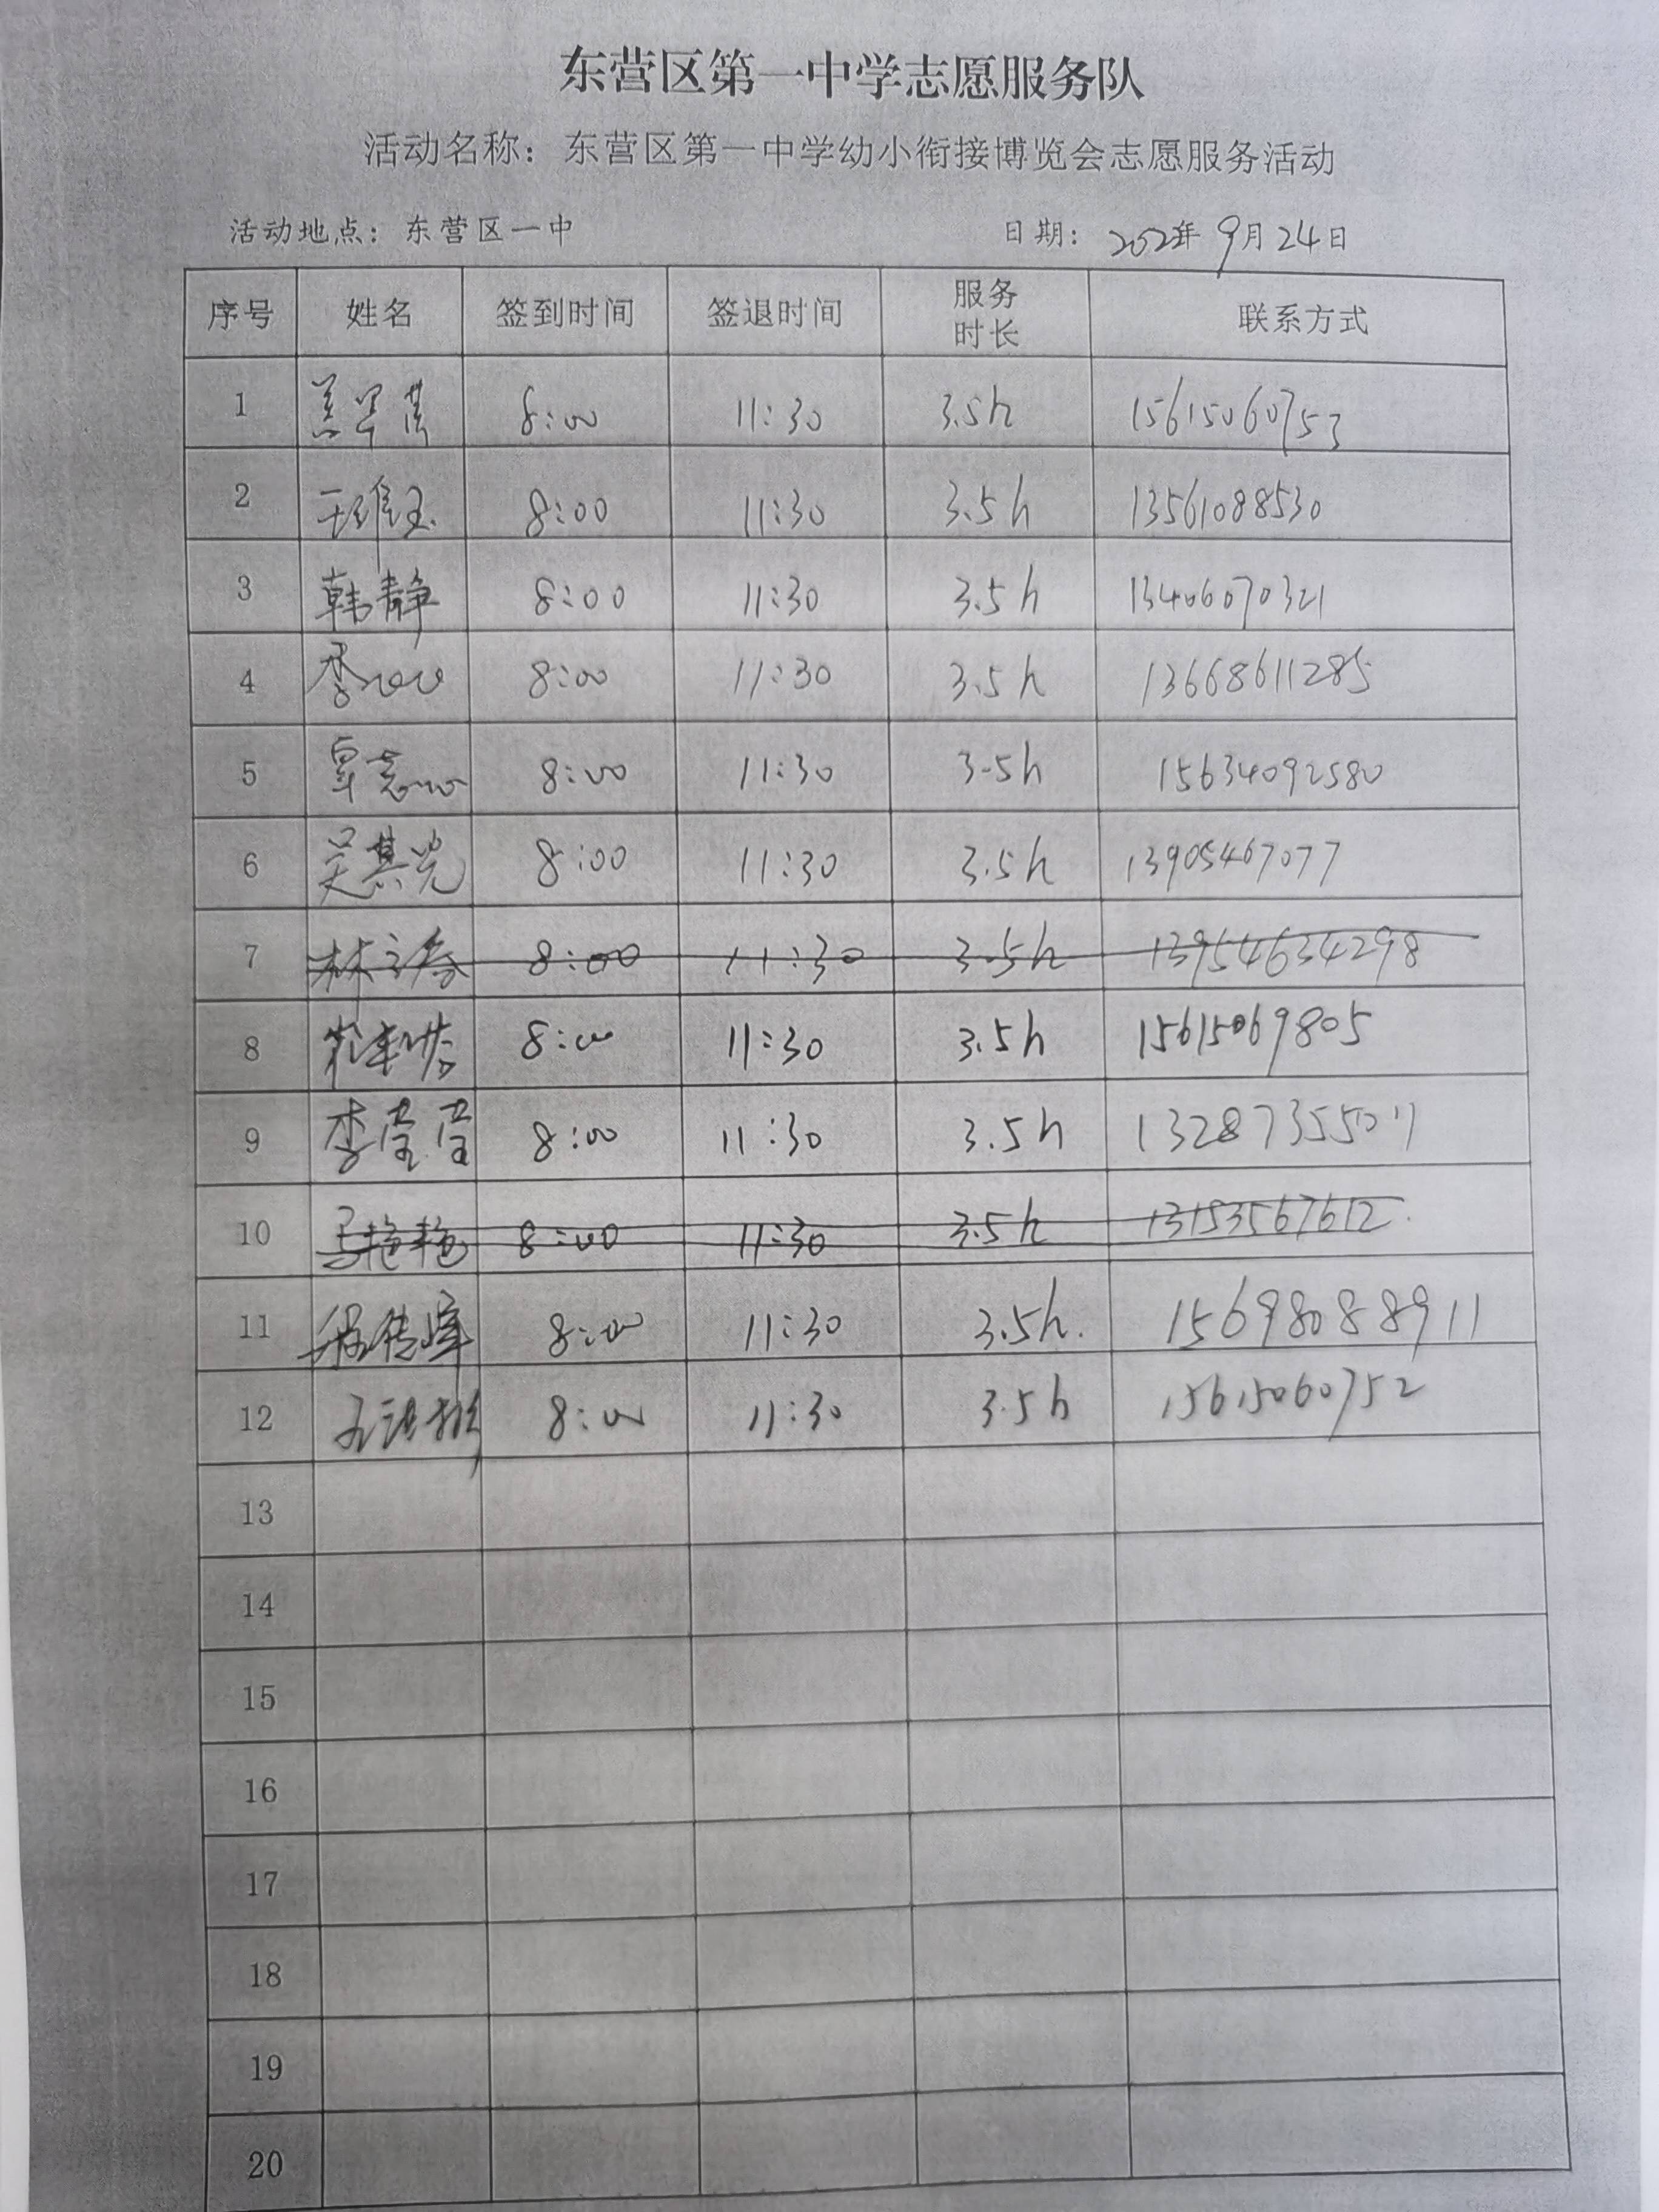 东营区第一中学志愿服务队
活动名称：东营区第一中学幼小衔接博览会志愿服务活动
活动地点：东营区一中 日期：202年9月24日
序号 姓名 签到时间 签退时间 服务时长 联系方式
1 8:00 11:30 3.5h 15615060753
2 8:00 11:30 3.5h 13561088530
3 韩静 8:00 11:30 3.5h 13406070321
4 李 8:00 11:30 3.5h 13668611285
5 8:00 11:30 3.5h 15634092580
6 吴其光 8:00 11:30 3.5h 13905467077
7 8:00 11:30 3.5h 13954634298
8 8:00 11:30 3.5h 15615069805
9 李莹莹 8:00 11:30 3.5h 13287355011
10 马艳艳 8:00 11:30 3.5h 13153567612
11 8:00 11:30 3.5h. 15698088911
12 8:00 11:30 3.5h 15615060752
13
14
15
16
17
18
19
20